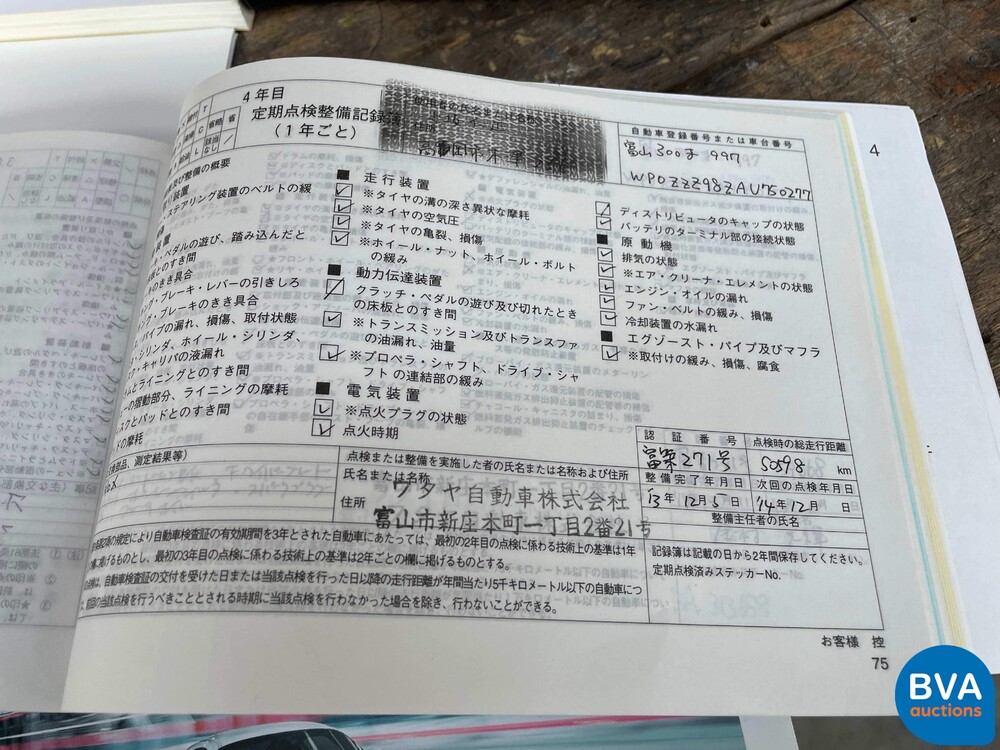 4年目
定期点検整備記録簿
(1年ごと)
自動車登録番号または車台番号
富山300ま997
WP0ZZZ98ZAU750277
4
及び整備の概要
装置
ステアリング装置のベルトの緩
装置
・ペダルの遊び、踏み込んだと
板とのすき間
のきき具合
ング・ブレーキ・レバーの引きしろ
・ブレーキのきき具合
パイプの漏れ、損傷、取付状態
・シリンダ、ホイール・シリンダ、
ク・キャリパの液漏れ
ムとライニングとのすき間
ーの摺動部分、ライニングの摩耗
スクとパッドとのすき間
ドの摩耗
■ 走行装置
※タイヤの溝の深さ異状な摩耗
※タイヤの空気圧
※タイヤの亀裂、損傷
※ホイール・ナット、ホイール・ボルト
の緩み
■ 動力伝達装置
クラッチ・ペダルの遊び及び切れたとき
の床板とのすき間
※トランスミッション及びトランスファ
の油漏れ、油量
※プロペラ・シャフト、ドライブ・シャ
フトの連結部の緩み
■ 電気装置
※点火プラグの状態
点火時期
ディストリビュータのキャップの状態
バッテリのターミナル部の接続状態
■ 原動機
排気の状態
※エア・クリーナ・エレメントの状態
エンジン・オイルの漏れ
ファン・ベルトの緩み、損傷
冷却装置の水漏れ
■ エグゾースト・パイプ及びマフラ
※取付けの緩み、損傷、腐食
換部品、測定結果等)
点検または整備を実施した者の氏名または名称および住所
氏名または名称
ワタヤ自動車株式会社
住所
富山市新庄本町一丁目2番21号
認証番号
点検時の総走行距離
富第271号
50598 km
整備完了年月日
次回の点検年月日
'13年12月5日
'14年12月 日
整備主任者の氏名
記録簿は記載の日から2年間保存してください。
定期点検済みステッカーNo.
の規定により自動車検査証の有効期間を3年とされた自動車にあたっては、最初の2年目の点検に係わる技術上の基準は1年
に掲げるものとし、最初の3年目の点検に係わる技術上の基準は2年ごとの欄に掲げるものとする。
は、自動車検査証の交付を受けた日または当該点検を行った日以降の走行距離が年間当たり5千キロメートル以下の自動車につ
前回の当該点検を行うべきこととされる時期に当該点検を行わなかった場合を除き、行わないことができる。
お客様 控
75
BVA
auctions